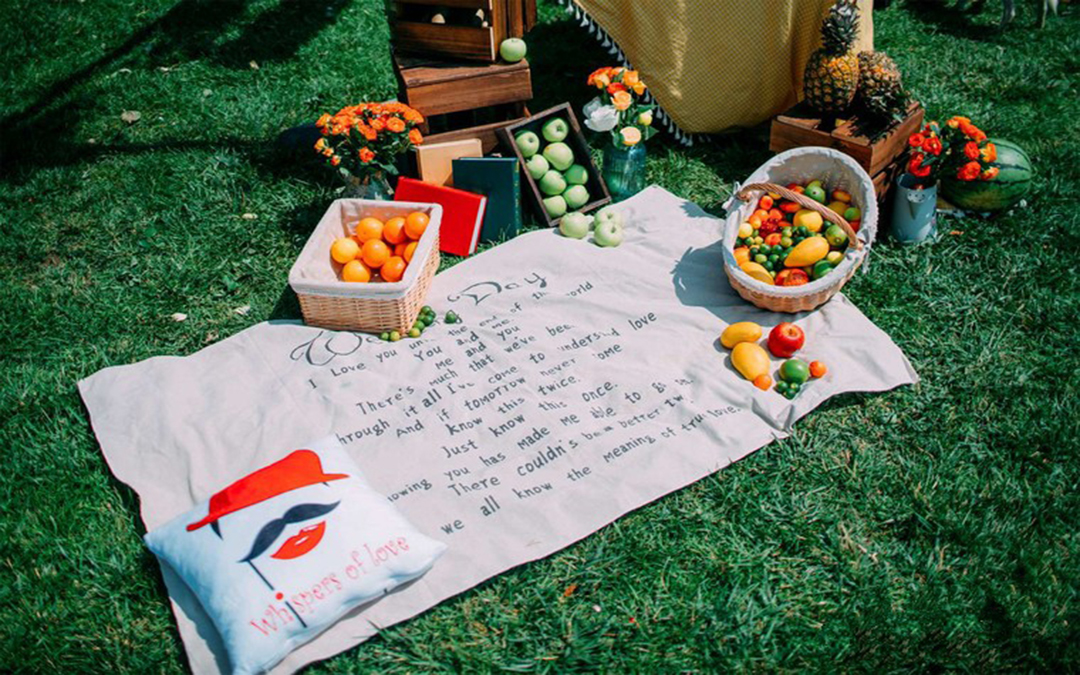 Day
I Love you the end of world
You and me.
Me and you
There's much that we've
it all I've come to understand love
And if tomorrow never
Know this twice.
Just know this once.
you has made me able to
There couldn's be a better
we all know the meaning of love.
whispers of love